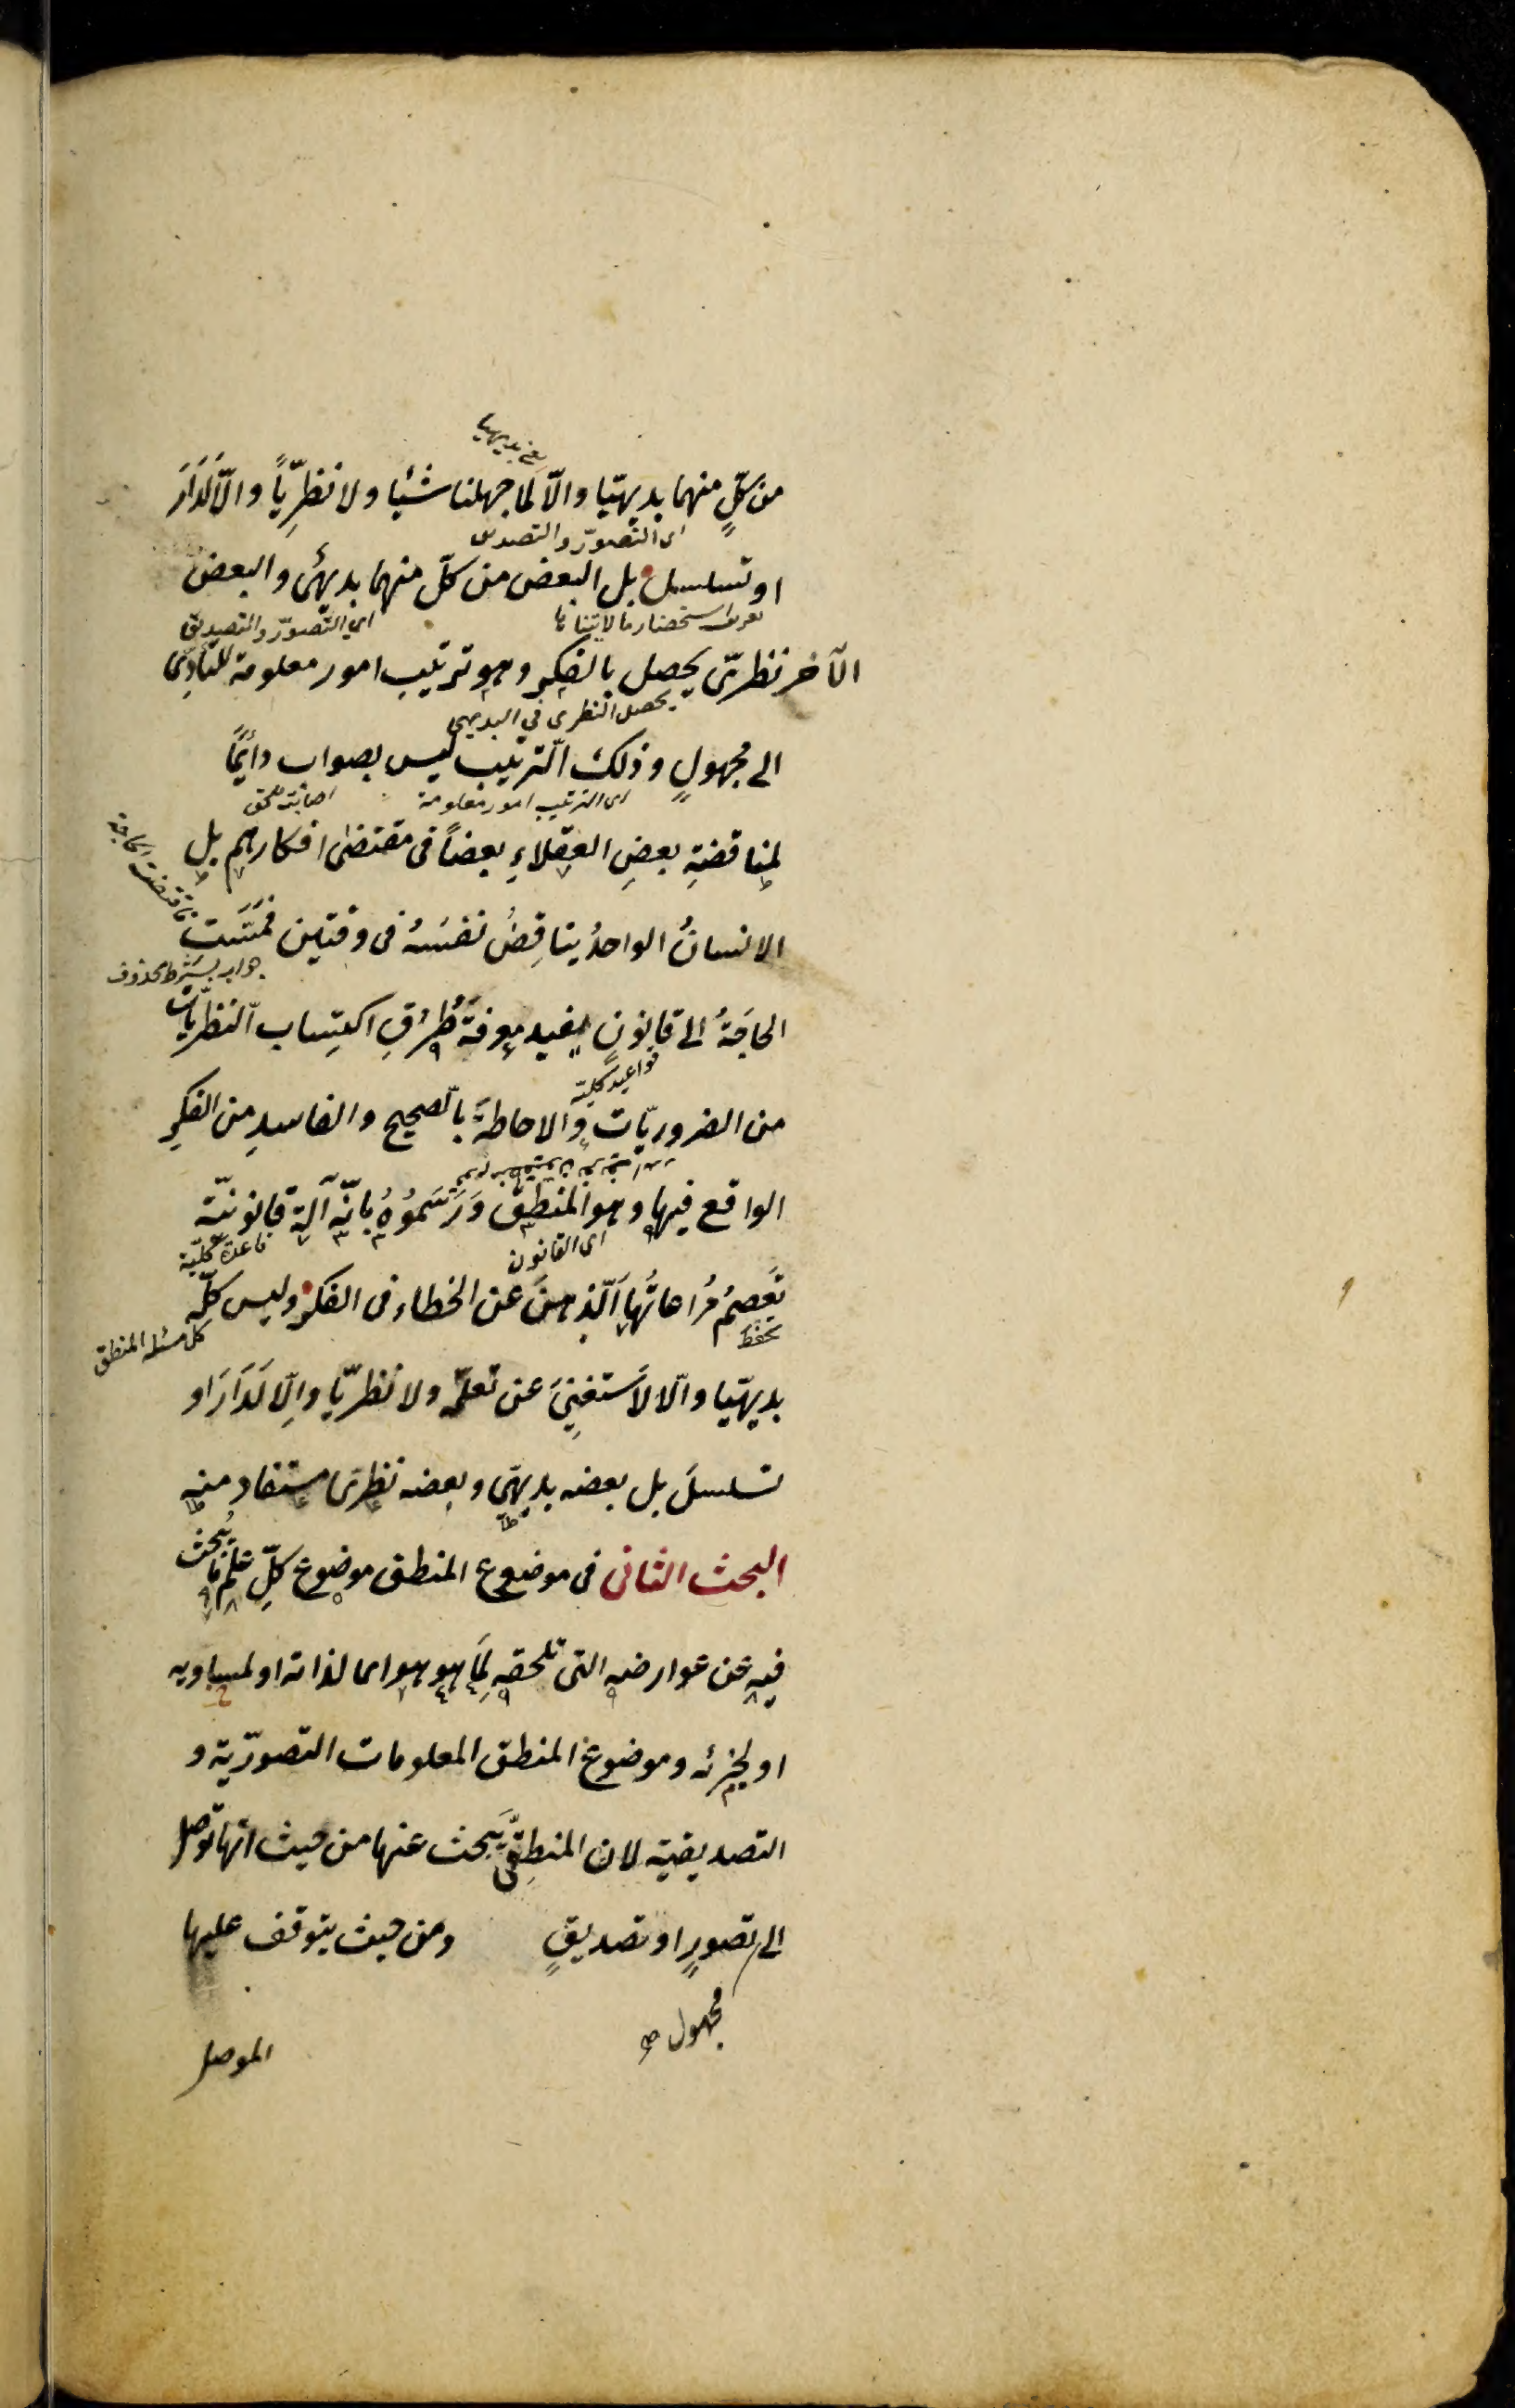 من كلٍّ منهما بديهيّا والّا لَما جهلنا شئيا ولا نظرِيّاً والّا لَدَارَ
اى التصوّر والتصديق
او تسلسل بل البعض من كلّ منهما بديهىّ والبعض
استحضار ما لا يتناها
اى التّصوّر والتصديق
الآخر نظرىّ يحصل بالفكر وهو ترتيب امور معلومة للتأدّى
يحصل النظرى فى البديهى
الى مجهولٍ وذلك الترتيب ليس بصواب دائمًا
اى الترتيب امور معلومة
لمناقضةِ بعضِ العقلاءِ بعضاً فى مقتضى افكارهم بل
الانسانُ الواحدُ يناقِضُ نفسَهُ فى وقتين فمَسَّت
جواب شرط محذوف
الحاجَةُ الى قانونٍ يفيد معرفةَ طُرُقِ اكتِساب النظريّات
قواعد كليّة
من الضروريّات والاحاطةَ بالصحيح والفاسدِ من الفكرِ
الواقع فيها وهو المنطق وَرَسَمُوهُ بانّه آلة قانونيّة
اى القانون
قاعدة كليّة
تَعصِمُ مُراعاتُها الّذهنَ عن الخطاء فى الفكر وليس كلّه
تحفظ
كل مسئله المنطق
بديهيّا والّا لاَستغنِىَ عن تعلّمه ولا نظريّا والّا لَدَارَ او
تسلسلَ بل بعضه بديهىّ وبعضه نظرىّ مستفاد منه
البحث الثانى فى موضوع المنطق موضوع كلِّ علم ما يُبحث
فيه عن عوارضه التى تلحقه لِمَا هو هو اى لذاته او لمساويه
او لجزئه وموضوع المنطق المعلومات التصوّرية و
التصديقية لان المنطِقىَّ يَبحث عنها من حيث انّها توصل
الى تصورٍ او تصديقٍ ومن حيث يتوقف عليها
مجهول صح
الموصل